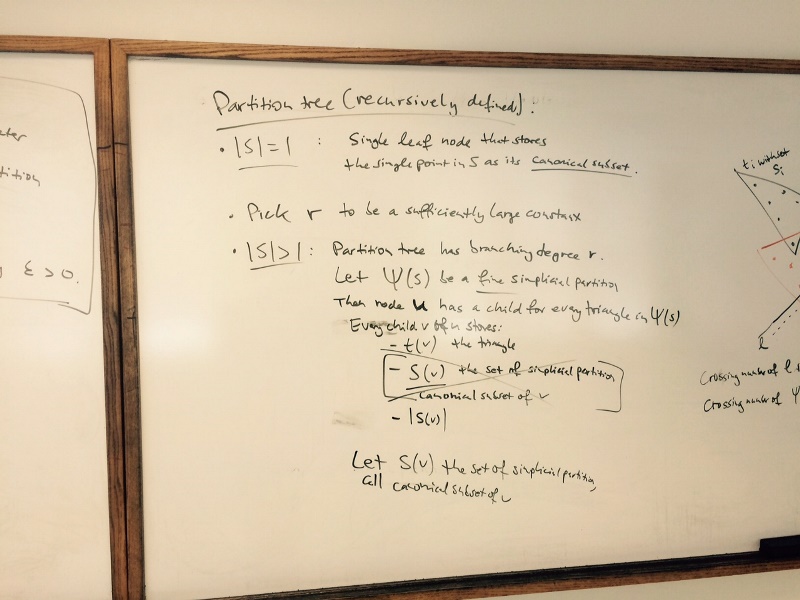 ter
tition
ε > 0.
Partition tree (recursively defined):
• |S|=1 : Single leaf node that stores
the single point in S as its canonical subset.
• Pick r to be a sufficiently large constant
• |S|>1: Partition tree has branching degree r.
Let Ψ(S) be a fine simplicial partition
Then node u has a child for every triangle in Ψ(S)
Every child v of u stores:
- t(v) the triangle
- S(v) the set of simplicial partition
canonical subset of v
- |S(v)|
Let S(v) the set of simplicial partition,
call canonical subset of v
ti with set
Si
l
Crossing number of l
Crossing number of Ψ